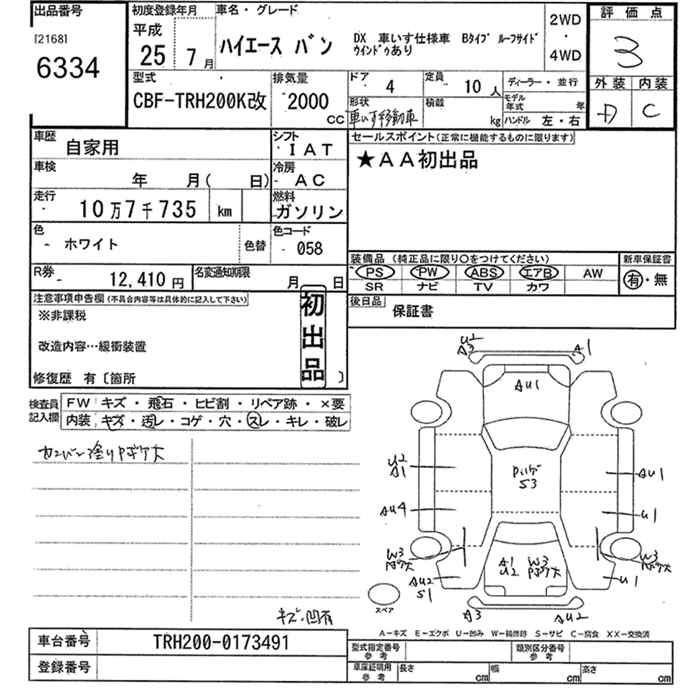 出品番号
[2168]
6334
初度登録年月
平成
25 7月
車名・グレード
ハイエース バン
DX 車いす仕様車 Bタイプ ルーフサイド
ウインドウあり
2WD
・
4WD
評価点
3
外装 内装
A C
型式
CBF-TRH200K改
排気量
2000
CC
ドア
4
定員
10 人
ディーラー・並行
形状
車いす移動車
積載
kg
モデル
年式 年
ハンドル 左・右
車歴
自家用
シフト
IAT
車検
年 月( 日)
冷房
AC
走行
10万7千735 km
燃料
ガソリン
色
ホワイト
色替
色コード
058
R券
12,410 円
名変通知期限
月 日
セールスポイント(正常に機能するものに限ります)
★AA初出品
装備品 (純正品に限り○をつけてください)
PS PW ABS エアB AW
SR ナビ TV カワ
新車保証書
有・無
後日品
保証書
注意事項申告欄(不具合内容等は具体的に記入して下さい)
※非課税
改造内容…緩衝装置
修復歴 有〔箇所 〕
初出品
検査員
記入欄
FW キズ・飛石・ヒビ割・リペア跡・×要
内装 キズ・汚レ・コゲ・穴・スレ・キレ・破レ
U2
A3
A1
AU1
U2
A1
AU4
S3
AU1
U1
W3
A1
U2
W3
W3
AU2
S1
U1
スペア
A3
AU2
A－キズ E－エクボ U－凹み W－補修跡 S－サビ C－腐食 XX－交換済
車台番号
TRH200-0173491
登録番号
型式指定番号
参考
類別区分番号
参考
車庫証明用
参考
長さ cm
幅 cm
高さ cm